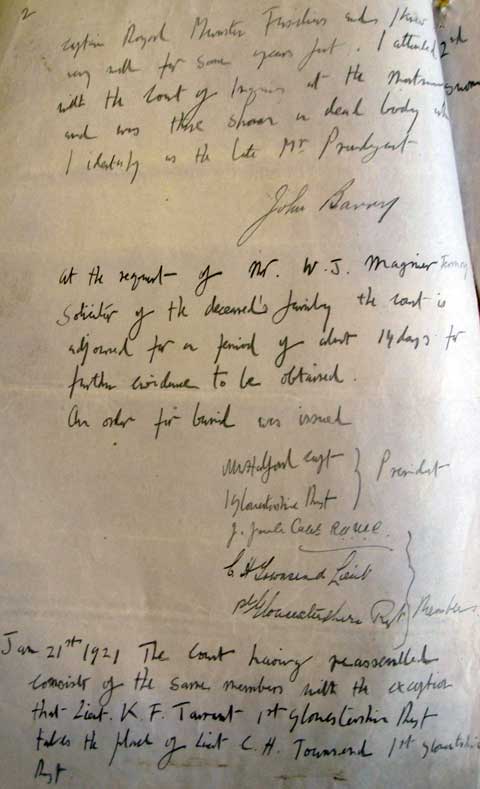 2
Captain Royal Munster Fusiliers and I knew him
very well for some years past. I attended 2nd
with the Court of Inquiry at the
and was there shown a dead body
I identify as the late Mr Prendergast
John Barry
At the request of Mr. W. J. Magnier Fermoy
Solicitor of the deceased's family the court is
adjourned for a period of about 14 days for
further evidence to be obtained.
An order for burial was issued
Halford Capt
1 Gloucestershire Regt
President
J. Capt R.A.M.C.
C H Townsend Lieut
1st Gloucestershire Regt
Members
Jan 21st 1921 The Court having reassembled
consists of the same members with the exception
that Lieut. K. F. Tarrant 1st Gloucestershire Regt
takes the place of Lieut C. H. Townsend 1st Gloucestershire
Regt.